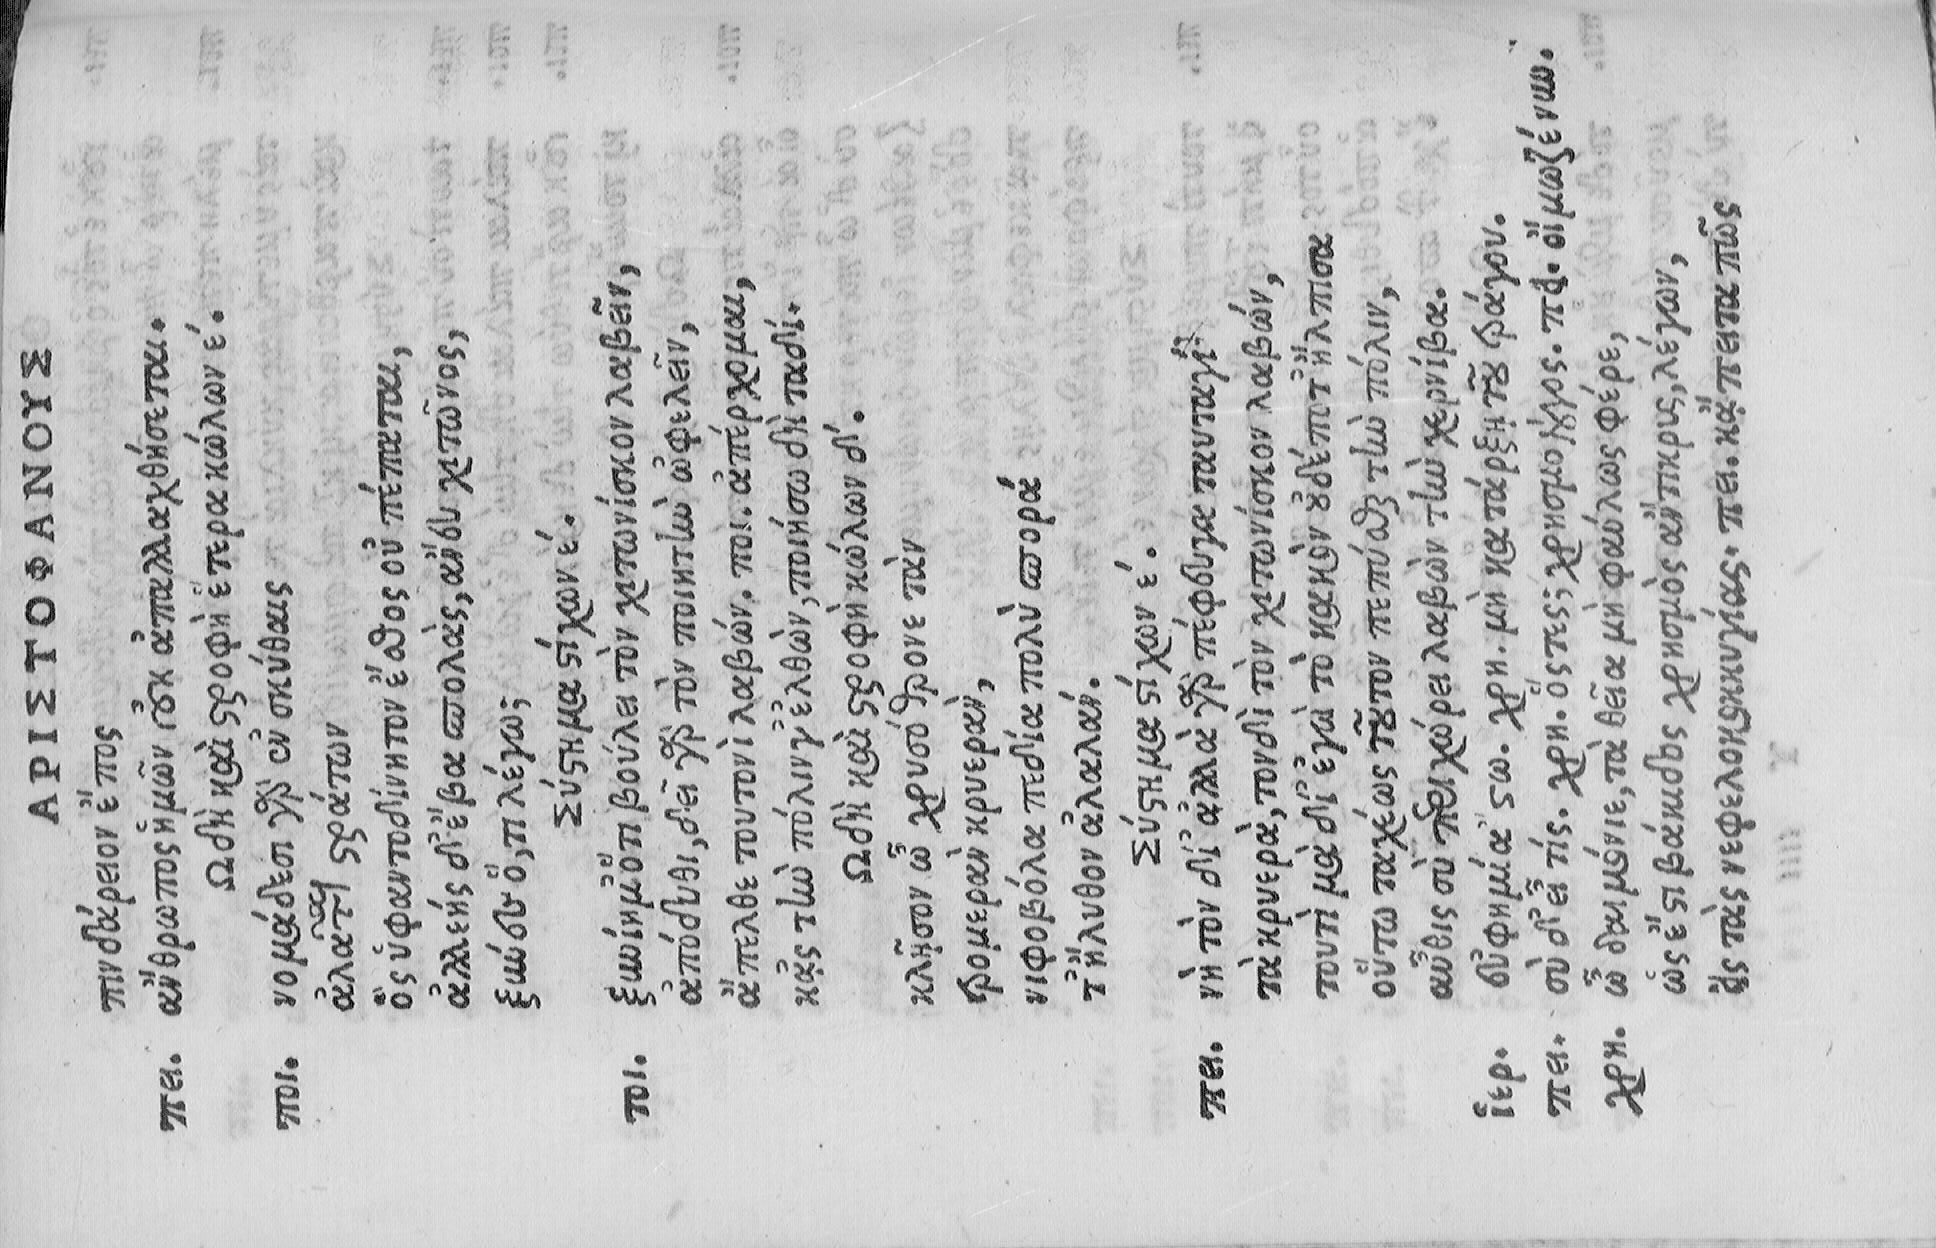 ΑΡΙΣΤΟΦΑΝΟΥΣ
πινδάρειον ἔπος
πει. ἄνθρωπος ἡμῶν οὐκ ἀπαλλαχθήσεται.
Ωδὴ καὶ στροφὴ ἑτέρα κώλων έ.
ποι. νομάδεσι γὰρ ἐν σκύθαις
ἀλᾶται στράτων
ὃς ὑφαντοδίνητον ἔσθος οὐ πέπαται,
ἀκλεὴς δ' ἔβα σπολὰς, ἄνευ χιτῶνος,
ξυνίσυ ὅ, τι λέγω;
Σύστημα στίχων έ.
ποι. ξυνίημ' ὅτι βούλει τὸν χιτωνίσκον λαβεῖν,
ἀπόδυθι, δεῖ γὰρ τὸν ποιητὴν ὠφελεῖν,
ἄπελθε τουτονὶ λαβών. ποι. ἀπέρχομαι,
κᾆς τὴν πόλιν γ' ἐλθὼν, ποιήσω δὴ ταδί.
Ωδὴ καὶ στροφὴ κώλων δ'.
κλῇσον ὦ χρυσόθρονε τὰν
τρομερὰν κρυερὰν,
νιφοβόλα πεδία πολύσπορά
τ' ἤλυθον ἀλαλάν.
Σύστημα στίχων έ.
πει. νὴ τὸν δί' ἀλλὰ γὰρ πέφευγα ταυταγὶ
τὰ κρυερὰ, τονδὶ τὸν χιτωνίσκον λαβών,
τουτὶ μὰ δί' ἐγὼ τὸ κακὸν οὐδέποτ' ἤλπισα
οὕτω ταχέως τοῦτον πεπύσθαι τὴν πόλιν,
αὖθις σὺ περιχώρει λαβὼν τὴν χερνίβα.
ἱερ. εὐφημία 'στω. χρη. μὴ κατάρξῃ τοῦ τράγου.
πει. σὺ δ' εἶ τίς. χρη. ὅστις; χρησμολόγος. πει. οἴμωζέ νυν.
χρη. ὦ δαιμόνιε, τὰ θεῖα μὴ φαύλως φέρε,
ὡς ἔστι βάκιδος χρησμὸς ἄντικρυς, λέγων,
ἐς τὰς νεφελοκοκκυγίας. πει. κἄπειτα πῶς